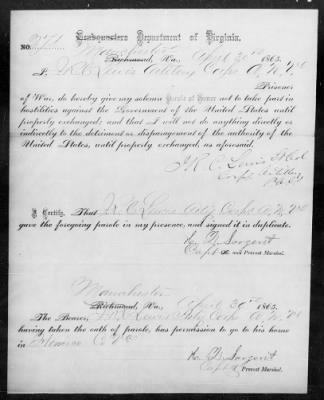 Headquarters Department of Virginia,
No.
Manchester
Richmond, Va., April 30th 1865.
I, Lewis Artillery Corps A. N. Va
Prisoner
of War, do hereby give my solemn Parole of Honor not to take part in
hostilities against the Government of the United States until
properly exchanged; and that I will not do anything directly or
indirectly to the detriment or disparagement of the authority of the
United States, until properly exchanged, as aforesaid.
J R C Lewis
Corps Artillery
I Certify, That J R C Lewis Arty Corps A. N. Va
gave the foregoing parole in my presence, and signed it in duplicate.
Sargent
Capt & Provost Marshal.
Manchester
Richmond, Va., April 30th 1865.
The Bearer, J R C Lewis Arty Corps A N Va
having taken the oath of parole, has permission to go to his home
in
Sargent
Capt & Provost Marshal.